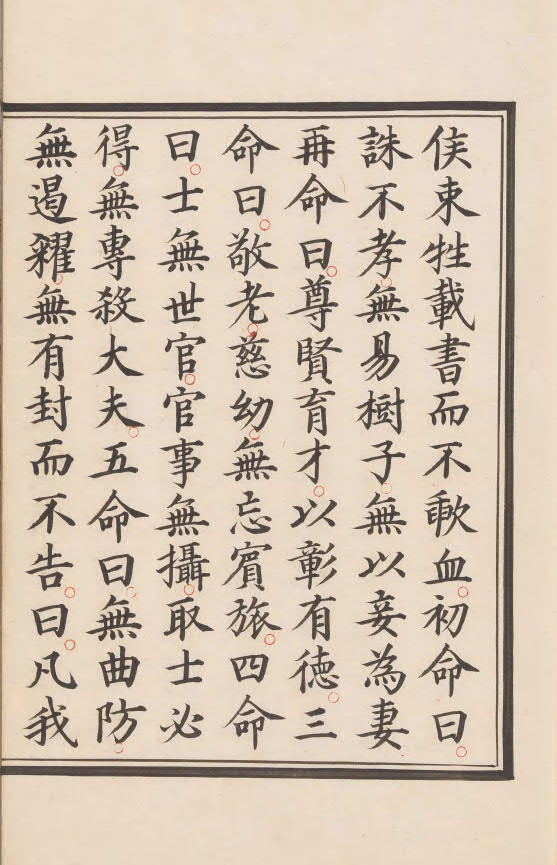 侯東牲載書而不歃血初命曰
誅不孝無易樹子無以妾為妻
再命曰尊賢育才以彰有德三
命曰敬老慈幼無忘賓旅四命
曰士無世官官事無攝取士必
得無專殺大夫五命曰無曲防
無遏糴無有封而不告曰凡我